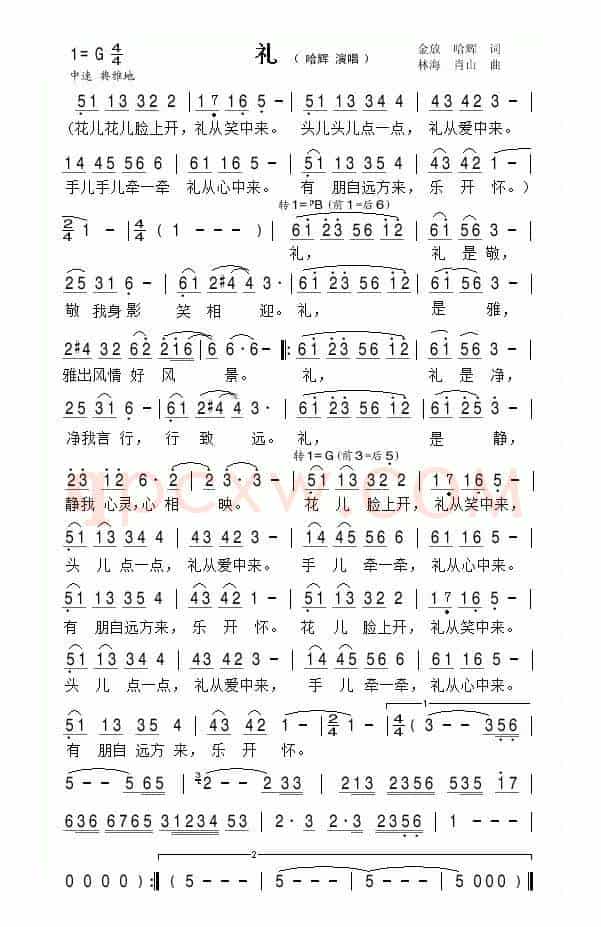 1=G 4/4 礼 （哈辉 演唱） 金放 哈辉 词
中速 典雅地 林海 肖山 曲
51 13 32 2 | 17 16 5 - | 51 13 34 5 | 61 16 5 - |
（花儿花儿脸上开，礼从笑中来。 头儿头儿点一点，礼从爱中来。
14 45 56 6 | 61 16 5 - | 51 13 35 4 | 43 42 1 - |
手儿手儿牵一牵 礼从心中来。 有 朋自远方来，乐 开 怀。）
转1=♭B（前1=后6）
2/4 1 - | 4/4 ( 1 - - - ) | 61 23 56 12 | 61 56 3 - |
礼， 礼 是 敬，
25 31 6 - | 61 2#4 4 3· | 61 23 56 12 | 61 56 3 - |
敬 我身影 笑 相 迎。礼， 是 雅，
2#4 32 62 216 | 6 6· 6 - ‖: 61 23 56 12 | 61 56 3 - |
雅出风情 好 风 景。 礼， 礼 是 净，
25 31 6 - | 61 2#4 4 3· | 61 23 56 12 | 61 25 3 - |
净我言行，行 致 远。礼， 是 静，
转1=G（前3=后5）
23 13 26· | 72 23 3 - | 51 13 32 2 | 17 16 5 - |
静我 心灵，心 相 映。 花 儿 脸上开，礼从笑中来，
51 13 34 5 | 61 16 5 - | 14 45 56 6 | 61 16 5 - |
头 儿 点一点，礼从爱中来。 手 儿 牵一牵，礼从心中来。
51 13 35 4 | 43 42 1 - | 51 13 32 2 | 17 16 5 - |
有 朋自远方来，乐 开 怀。花 儿 脸上开，礼从笑中来。
51 13 34 5 | 61 16 5 - | 14 45 56 6 | 61 16 5 - |
头 儿 点一点，礼从爱中来， 手 儿 牵一牵，礼从心中来。
1
51 13 35 4 | 43 42 1 - | 2/4 1 - | 4/4 (3 - - 356 |
有 朋自 远方 来，乐 开 怀。
5 - - 5 65 | 2 - - 2 33 | 1235 213 2356 532 35 17 |
636 6765 31234 53 | 2· 3 2·3 2356 | 1 - - - |
2
0 0 0 0 ) :‖ ( 5 - - - | 5 - - - | 5 - - - | 5 000 ) ‖